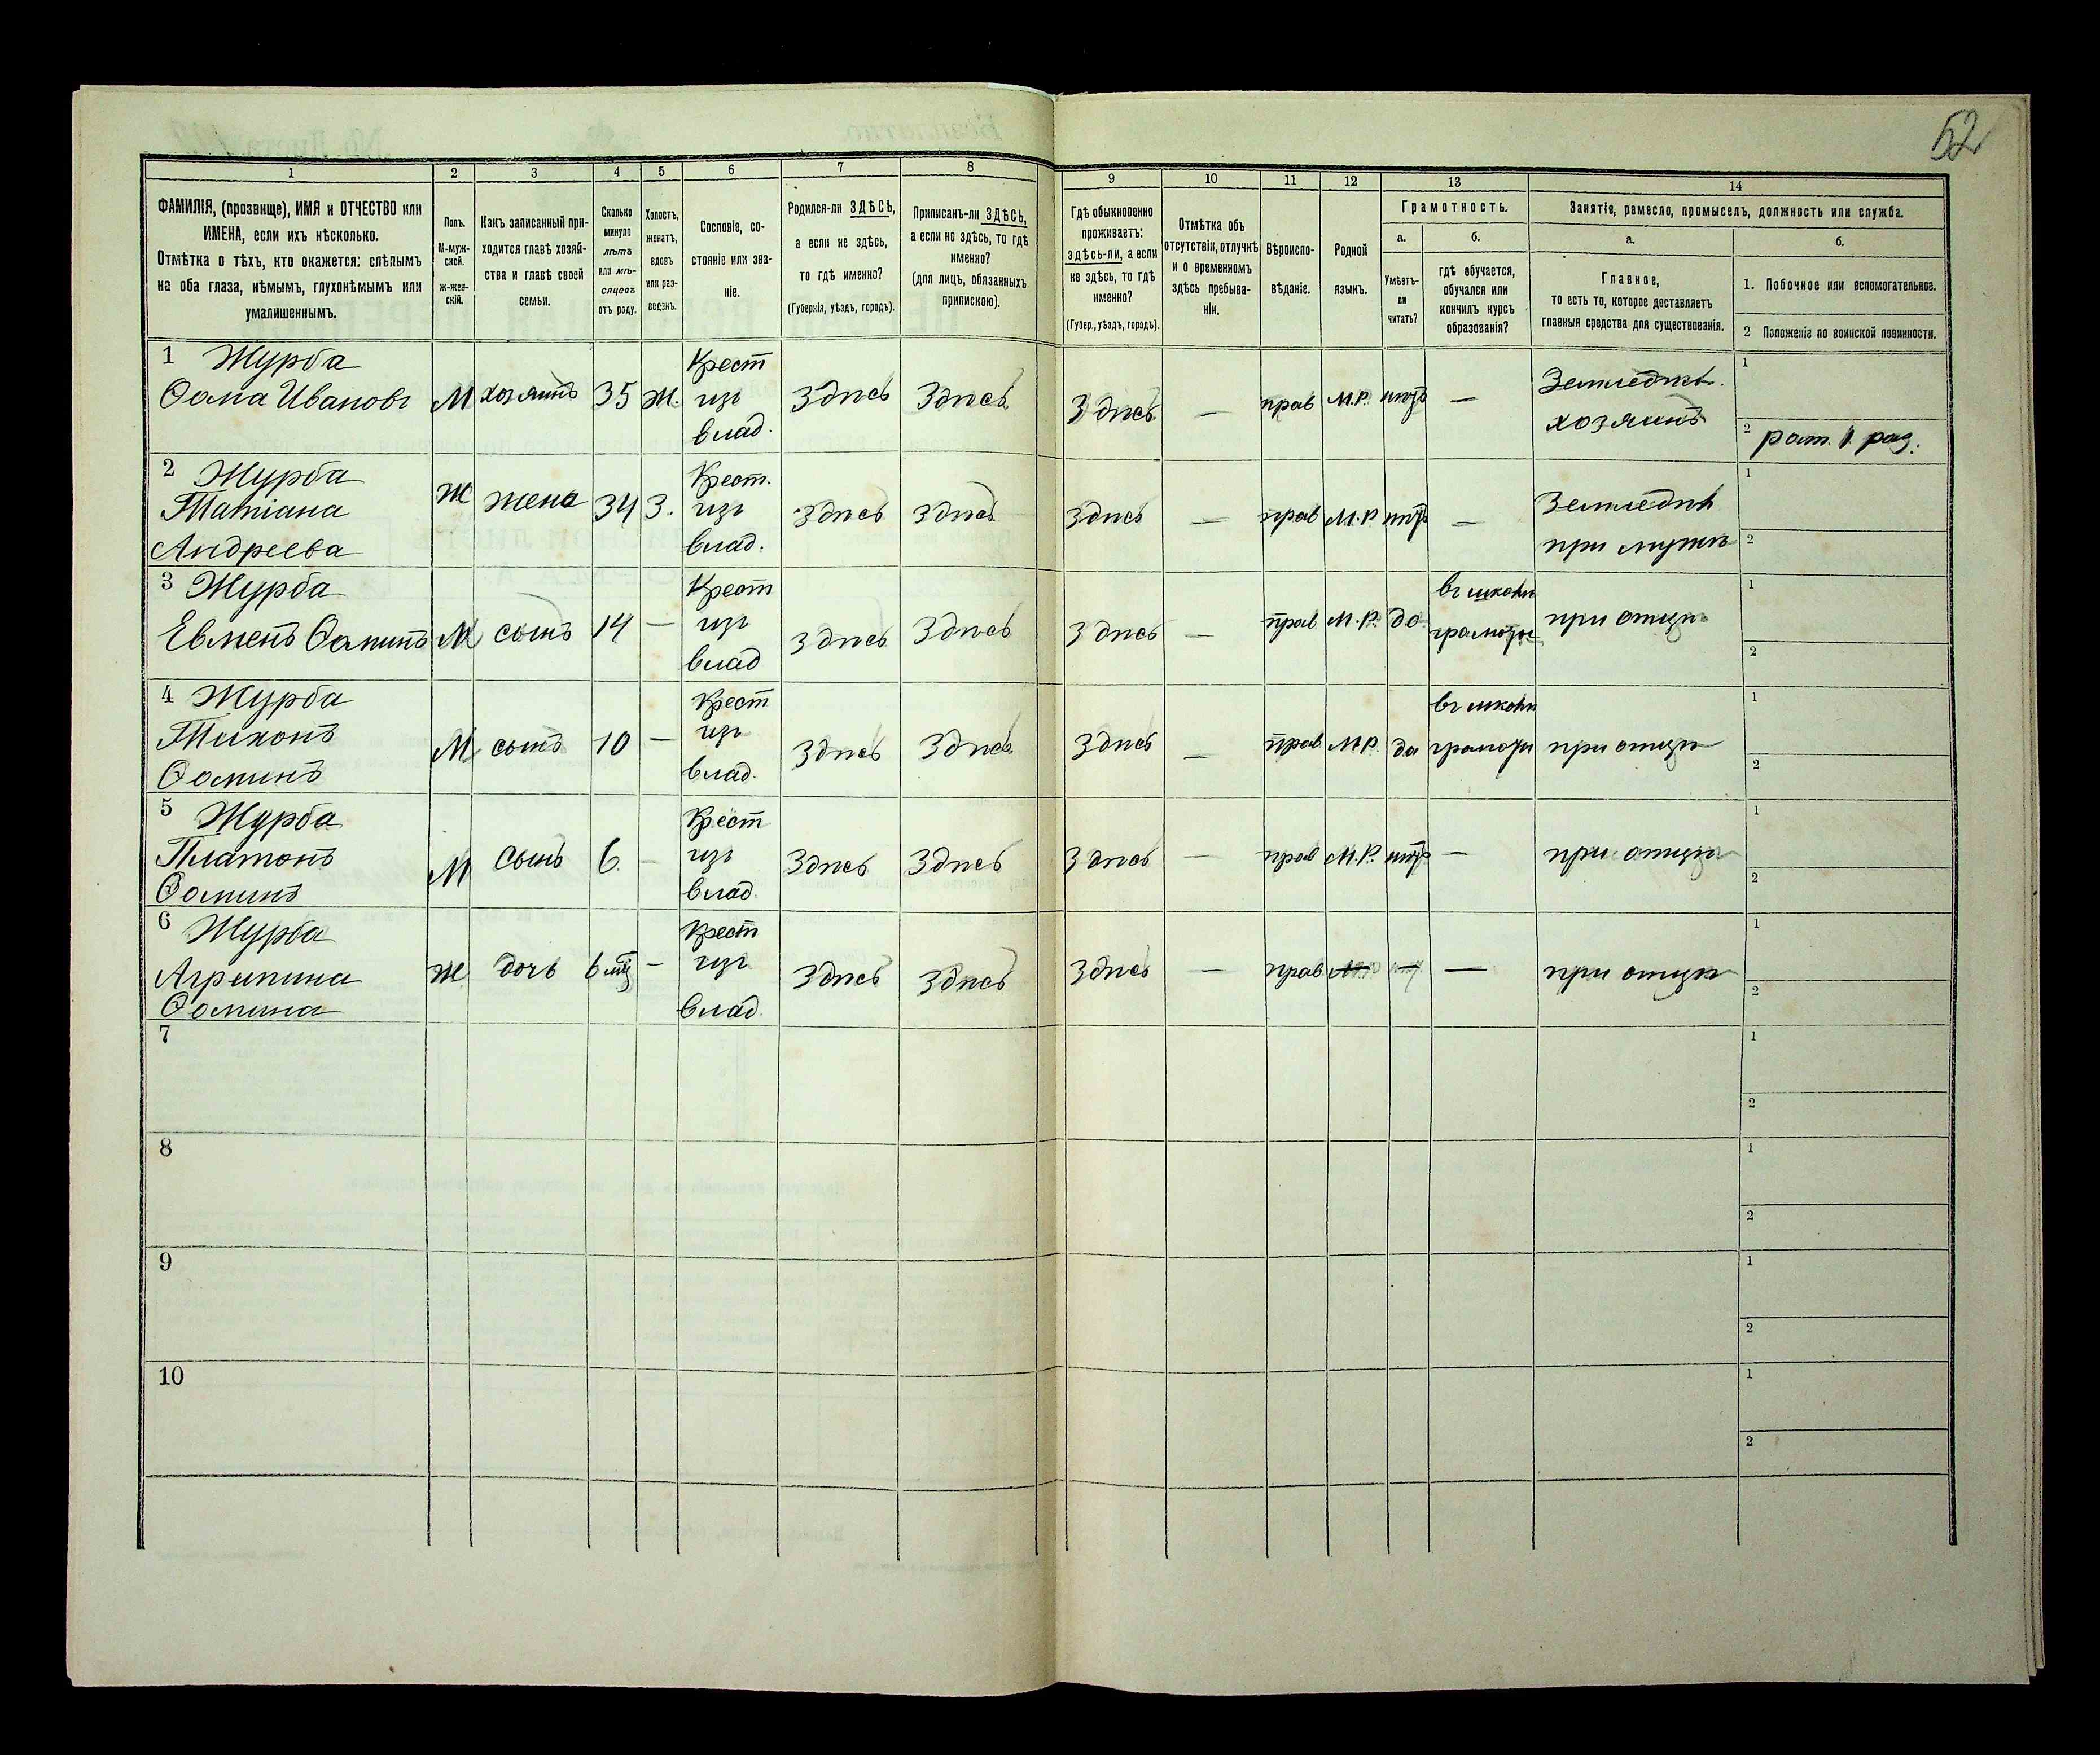 52
1 2 3 4 5 6 7 8 9 10 11 12 13 14
ФАМИЛІЯ, (прозвище), ИМЯ и ОТЧЕСТВО или
ИМЕНА, если ихъ нѣсколько.
Отмѣтка о тѣхъ, кто окажется: слѣпымъ
на оба глаза, нѣмымъ, глухонѣмымъ или
умалишеннымъ.
Полъ.
М-муж-
ской.
Ж-жен-
скій.
Какъ записанный при-
ходится главѣ хозяй-
ства и главѣ своей
семьи.
Сколько
минуло
лѣтъ
или мѣ-
сяцевъ
отъ роду.
Холостъ,
женатъ,
вдовъ
или раз-
веденъ.
Сословіе, со-
стояніе или зва-
ніе.
Родился-ли ЗДѢСЬ,
а если не здѣсь,
то гдѣ именно?
(Губернія, уѣздъ, городъ).
Приписанъ-ли ЗДѢСЬ,
а если не здѣсь, то гдѣ
именно?
(для лицъ, обязанныхъ
припискою).
Гдѣ обыкновенно
проживаетъ:
здѣсь-ли, а если
не здѣсь, то гдѣ
именно?
(Губер., уѣздъ, городъ).
Отмѣтка объ
отсутствіи, отлучкѣ
и о временномъ
здѣсь пребыва-
ніи.
Вѣроиспо-
вѣданіе.
Родной
языкъ.
Грамотность.
а.
Умѣетъ-
ли
читать?
б.
гдѣ обучается,
обучался или
кончилъ курсъ
образованія?
Занятіе, ремесло, промыселъ, должность или служба.
а.
Главное,
то есть то, которое доставляетъ
главныя средства для существованія.
б.
1. Побочное или вспомогательное.
2 Положеніе по воинской повинности.
1 Журба
Ѳома Ивановъ М хозяинъ 35 Ж. Крест
изъ
влад. Здѣсь Здѣсь Здѣсь — прав М.Р. нѣтъ — Земледѣл.
хозяинъ 1
2 рат. 1 раз.
2 Журба
Татіана
Андреева Ж жена 34 З. Крест.
изъ
влад. Здѣсь Здѣсь Здѣсь — прав М.Р. нѣтъ — Земледѣл
при мужѣ 1
2
3 Журба
Евменъ Ѳоминъ М сынъ 14 — Крест
изъ
влад Здѣсь Здѣсь Здѣсь — прав М.Р. да въ школѣ
грамоты при отцѣ 1
2
4 Журба
Тихонъ
Ѳоминъ М сынъ 10 — Крест
изъ
влад. Здѣсь Здѣсь Здѣсь — прав М.Р. да въ школѣ
грамоты при отцѣ 1
2
5 Журба
Платонъ
Ѳоминъ М сынъ 6 — Крест
изъ
влад. Здѣсь Здѣсь Здѣсь — прав М.Р. нѣтъ — при отцѣ 1
2
6 Журба
Агрипина
Ѳомина Ж дочь 6 мц — Крест
изъ
влад. Здѣсь Здѣсь Здѣсь — прав — — при отцѣ 1
2
7 1
2
8 1
2
9 1
2
10 1
2